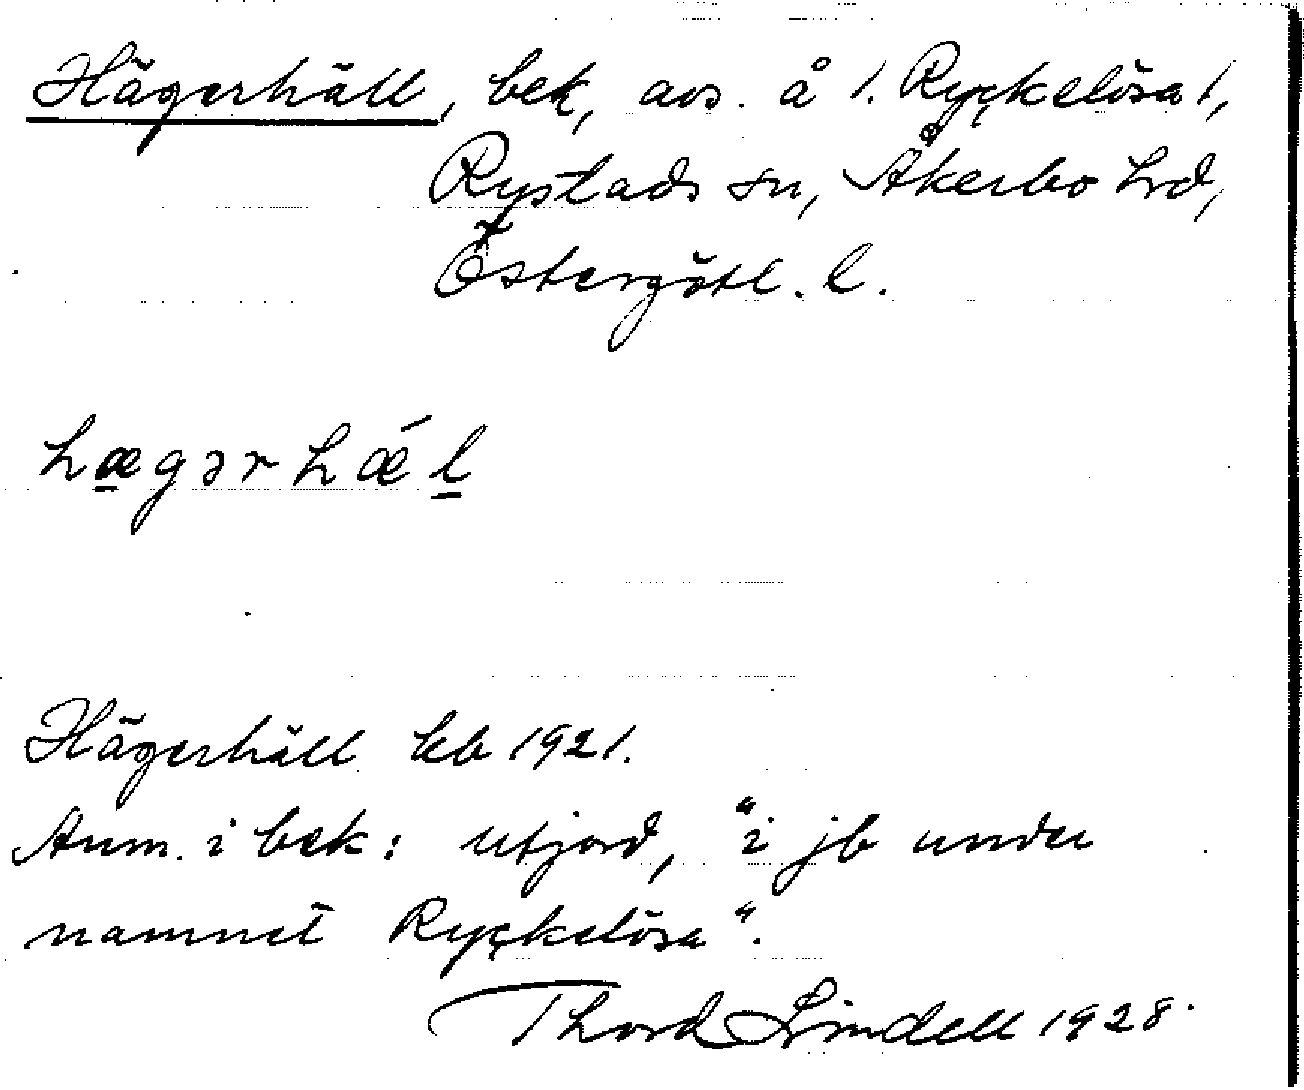 Hägerhäll, bek, avs. å 1. Ryckelösa 1,
Rystads sn, Åkerbo hd,
Östergötl. l.
hægərhǽl
Hägerhäll kb 1921.
Anm. i bek: utjord, "i jb under
namnet Ryckelösa".
Thord Lindell 1928.